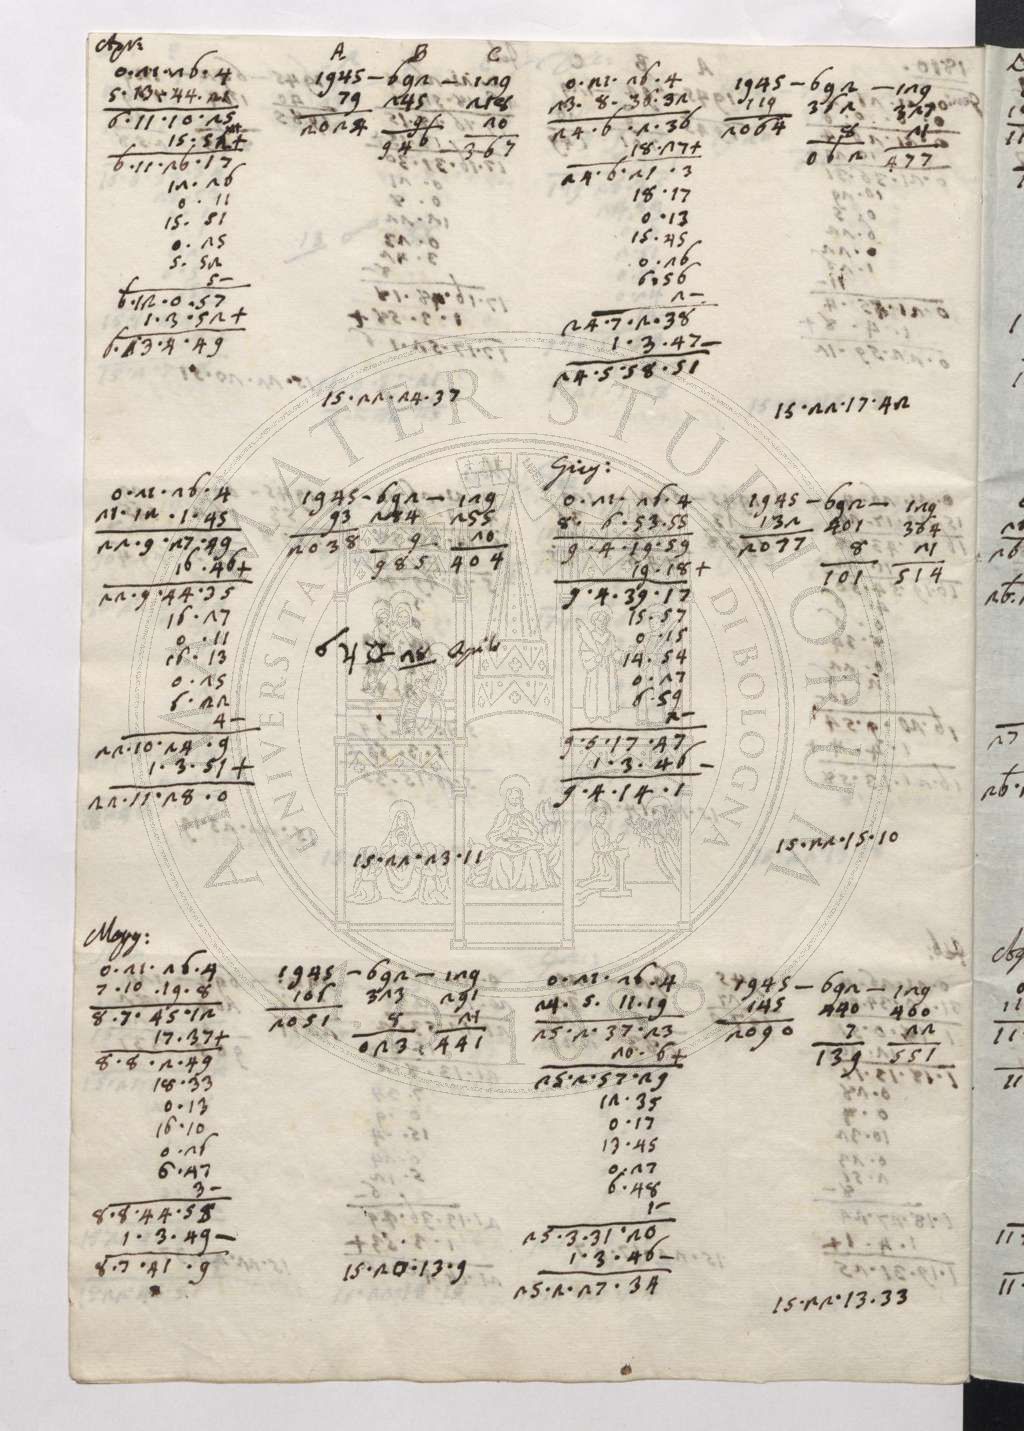 Apr:
0·21·26·4
5·13·44·21
6·11·10·25
15·52+
6·11·26·17
12·26
0·11
15·51
0·25
5·52
5-
6·12·0·57
1·3·52+
6·13·4·49
A B C
1945-692-129
79 245 218
2024 9 20
946 367
15·22·24·37
0·21·26·4
23·8·36·32
24·6·2·36
18·27+
24·6·21·3
18·17
0·13
15·45
0·26
6·56
2-
24·7·2·38
1·3·47-
24·5·58·51
1945-692-129
119 362 327
2064 8 21
062 477
15·22·17·42
0·21·26·4
21·12·1·45
22·9·27·49
16·46+
22·9·44·35
16·27
0·11
16·13
0·25
6·22
4-
22·10·24·9
1·3·51+
22·11·28·0
1945-692-129
93 284 255
2038 9 20
985 404
28 Aprile
15·22·23·11
Giug:
0·21·26·4
8·6·53·55
9·4·19·59
19·18+
9·4·39·17
15·57
0·15
14·54
0·27
6·59
2-
9·5·17·47
1·3·46-
9·4·14·1
1945-692-129
132 401 364
2077 8 21
101 514
15·22·15·10
Magg:
0·21·26·4
7·10·19·8
8·7·45·12
17·37+
8·8·2·49
18·33
0·13
16·10
0·26
6·47
3-
8·8·44·58
1·3·49-
8·7·41·9
1945-692-129
106 323 291
2051 8 21
023 441
15·20·13·9
0·21·26·4
24·5·11·19
25·2·37·23
20·6+
25·2·57·29
12·35
0·17
13·45
0·27
6·48
1-
25·3·31·20
1·3·46-
25·2·27·34
1945-692-129
145 440 460
2090 7 22
139 551
15·22·13·33